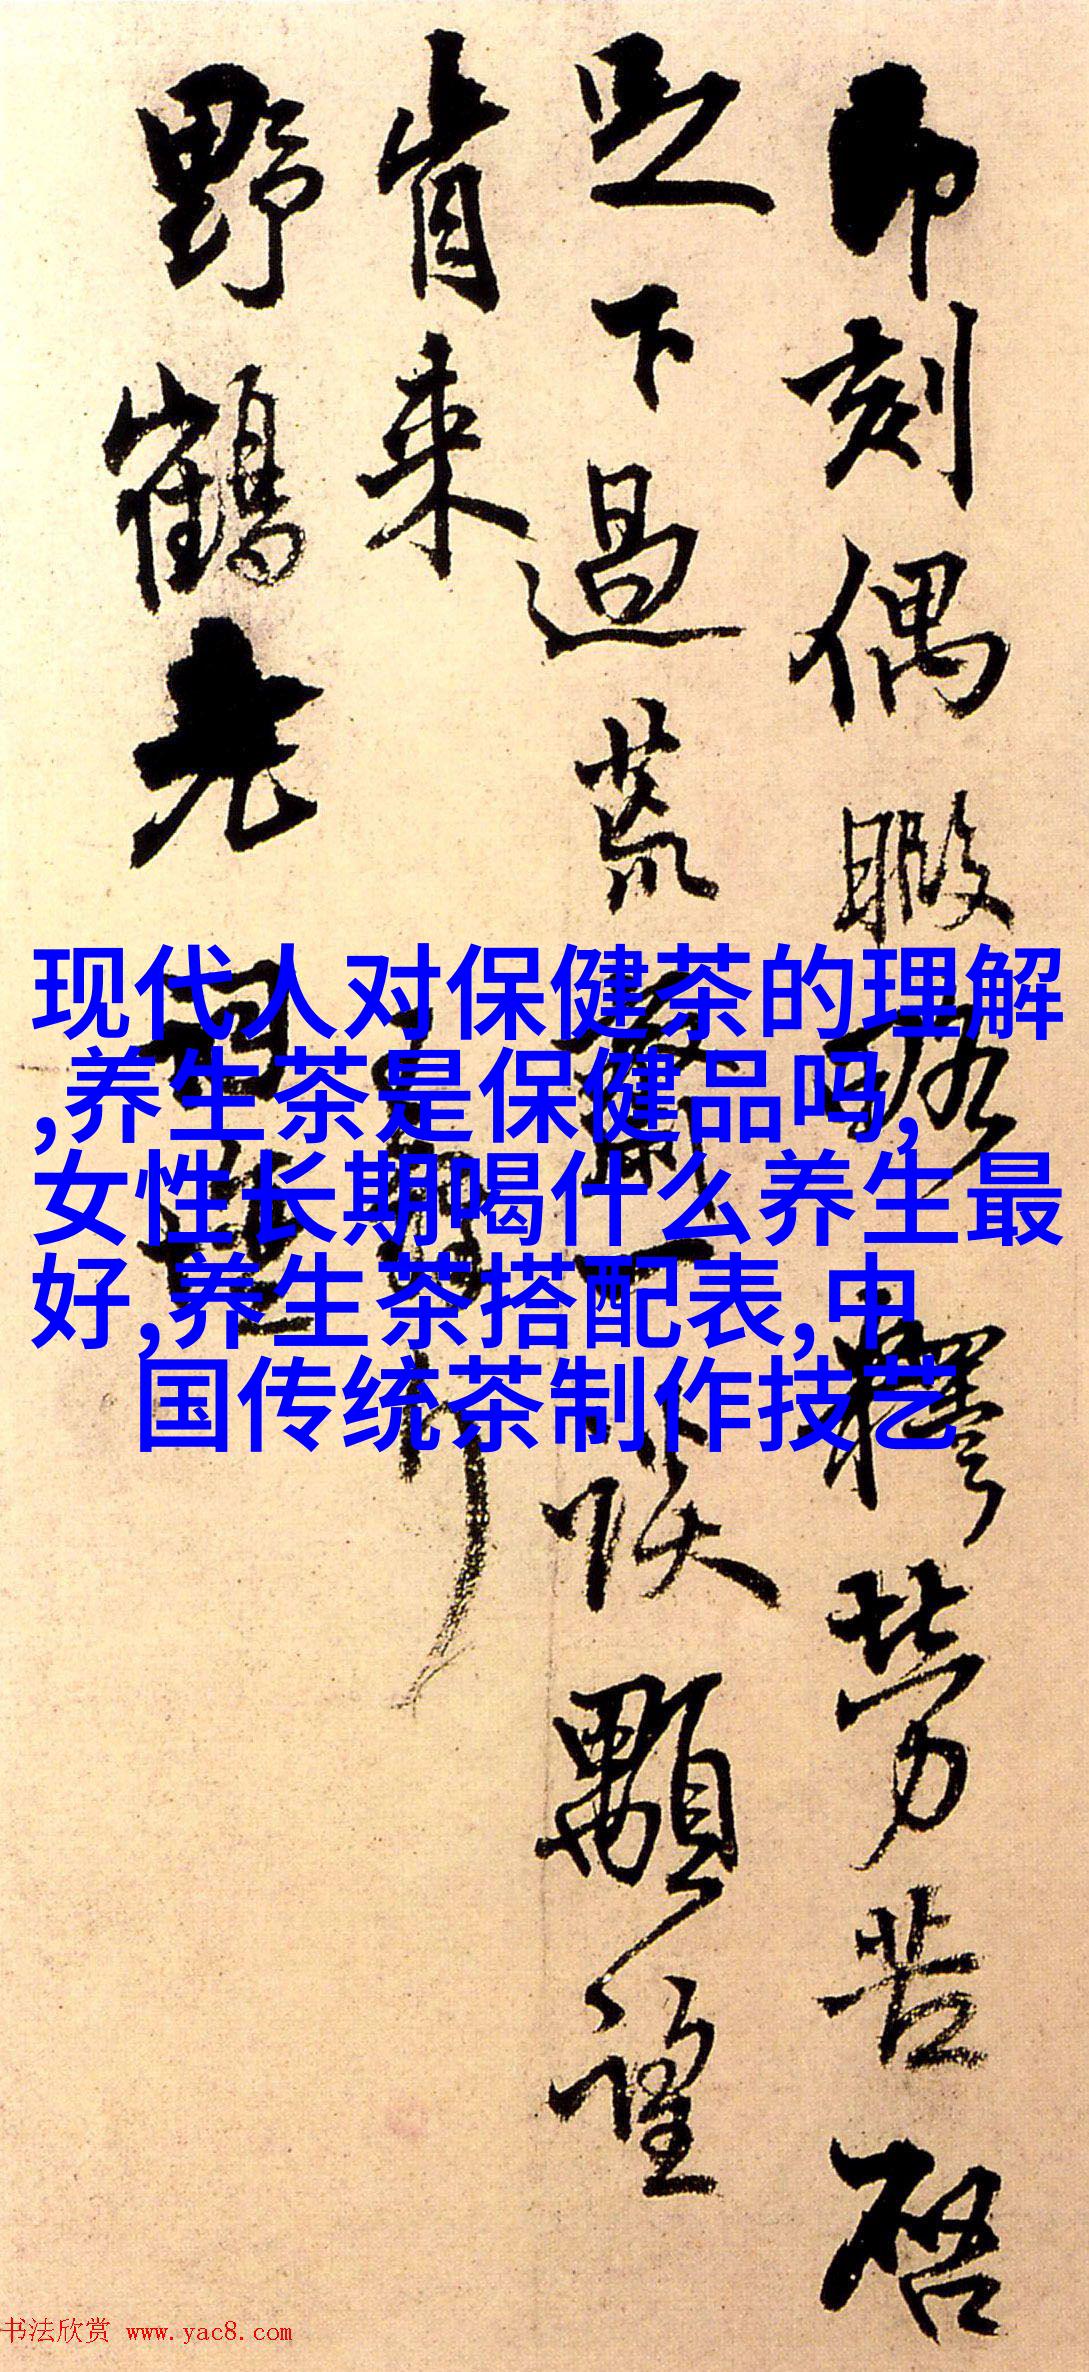 刻偶暇釋勞苦
足下過荒齋一談顒望
肯来
野鶴
现代人对保健茶的理解
,养生茶是保健品吗,
女性长期喝什么养生最
好,养生茶搭配表,中
国传统茶制作技艺
书法欣赏 www.yac8.com